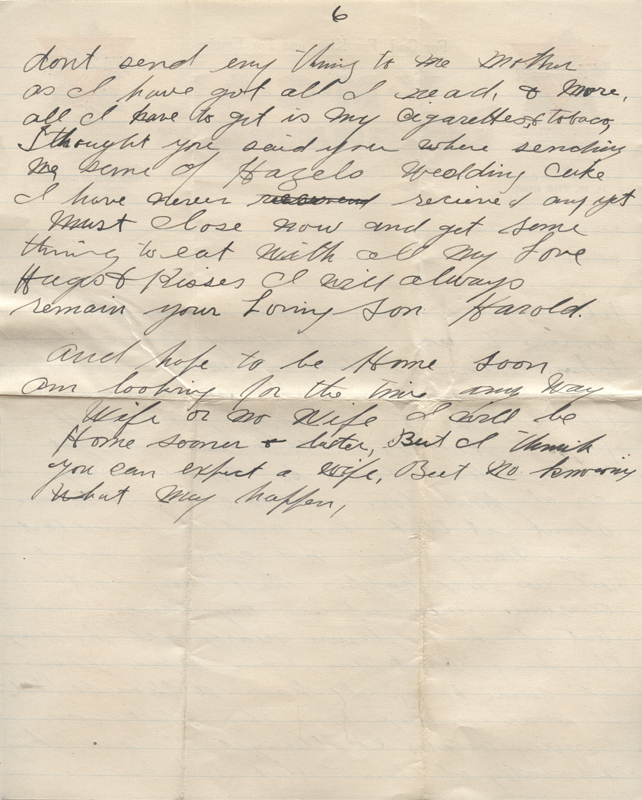 6
dont send eny thing to me Mother
as I have got all I nead, & More,
all I have to get is my Cigarettes, & tobaco,
I thought you said your where sending
me some of Hazels Wedding Cake
I have never recieved any yet
Must close now and get some
thing to eat With all my Love
Hugs & Kisses I will always
remain your Loving Son Harold.
And hope to be Home soon
am looking for the time any Way
Wife or no Wife I will be
Home sooner & later, But I think
you can expect a wife, But no knowing
What May happen,